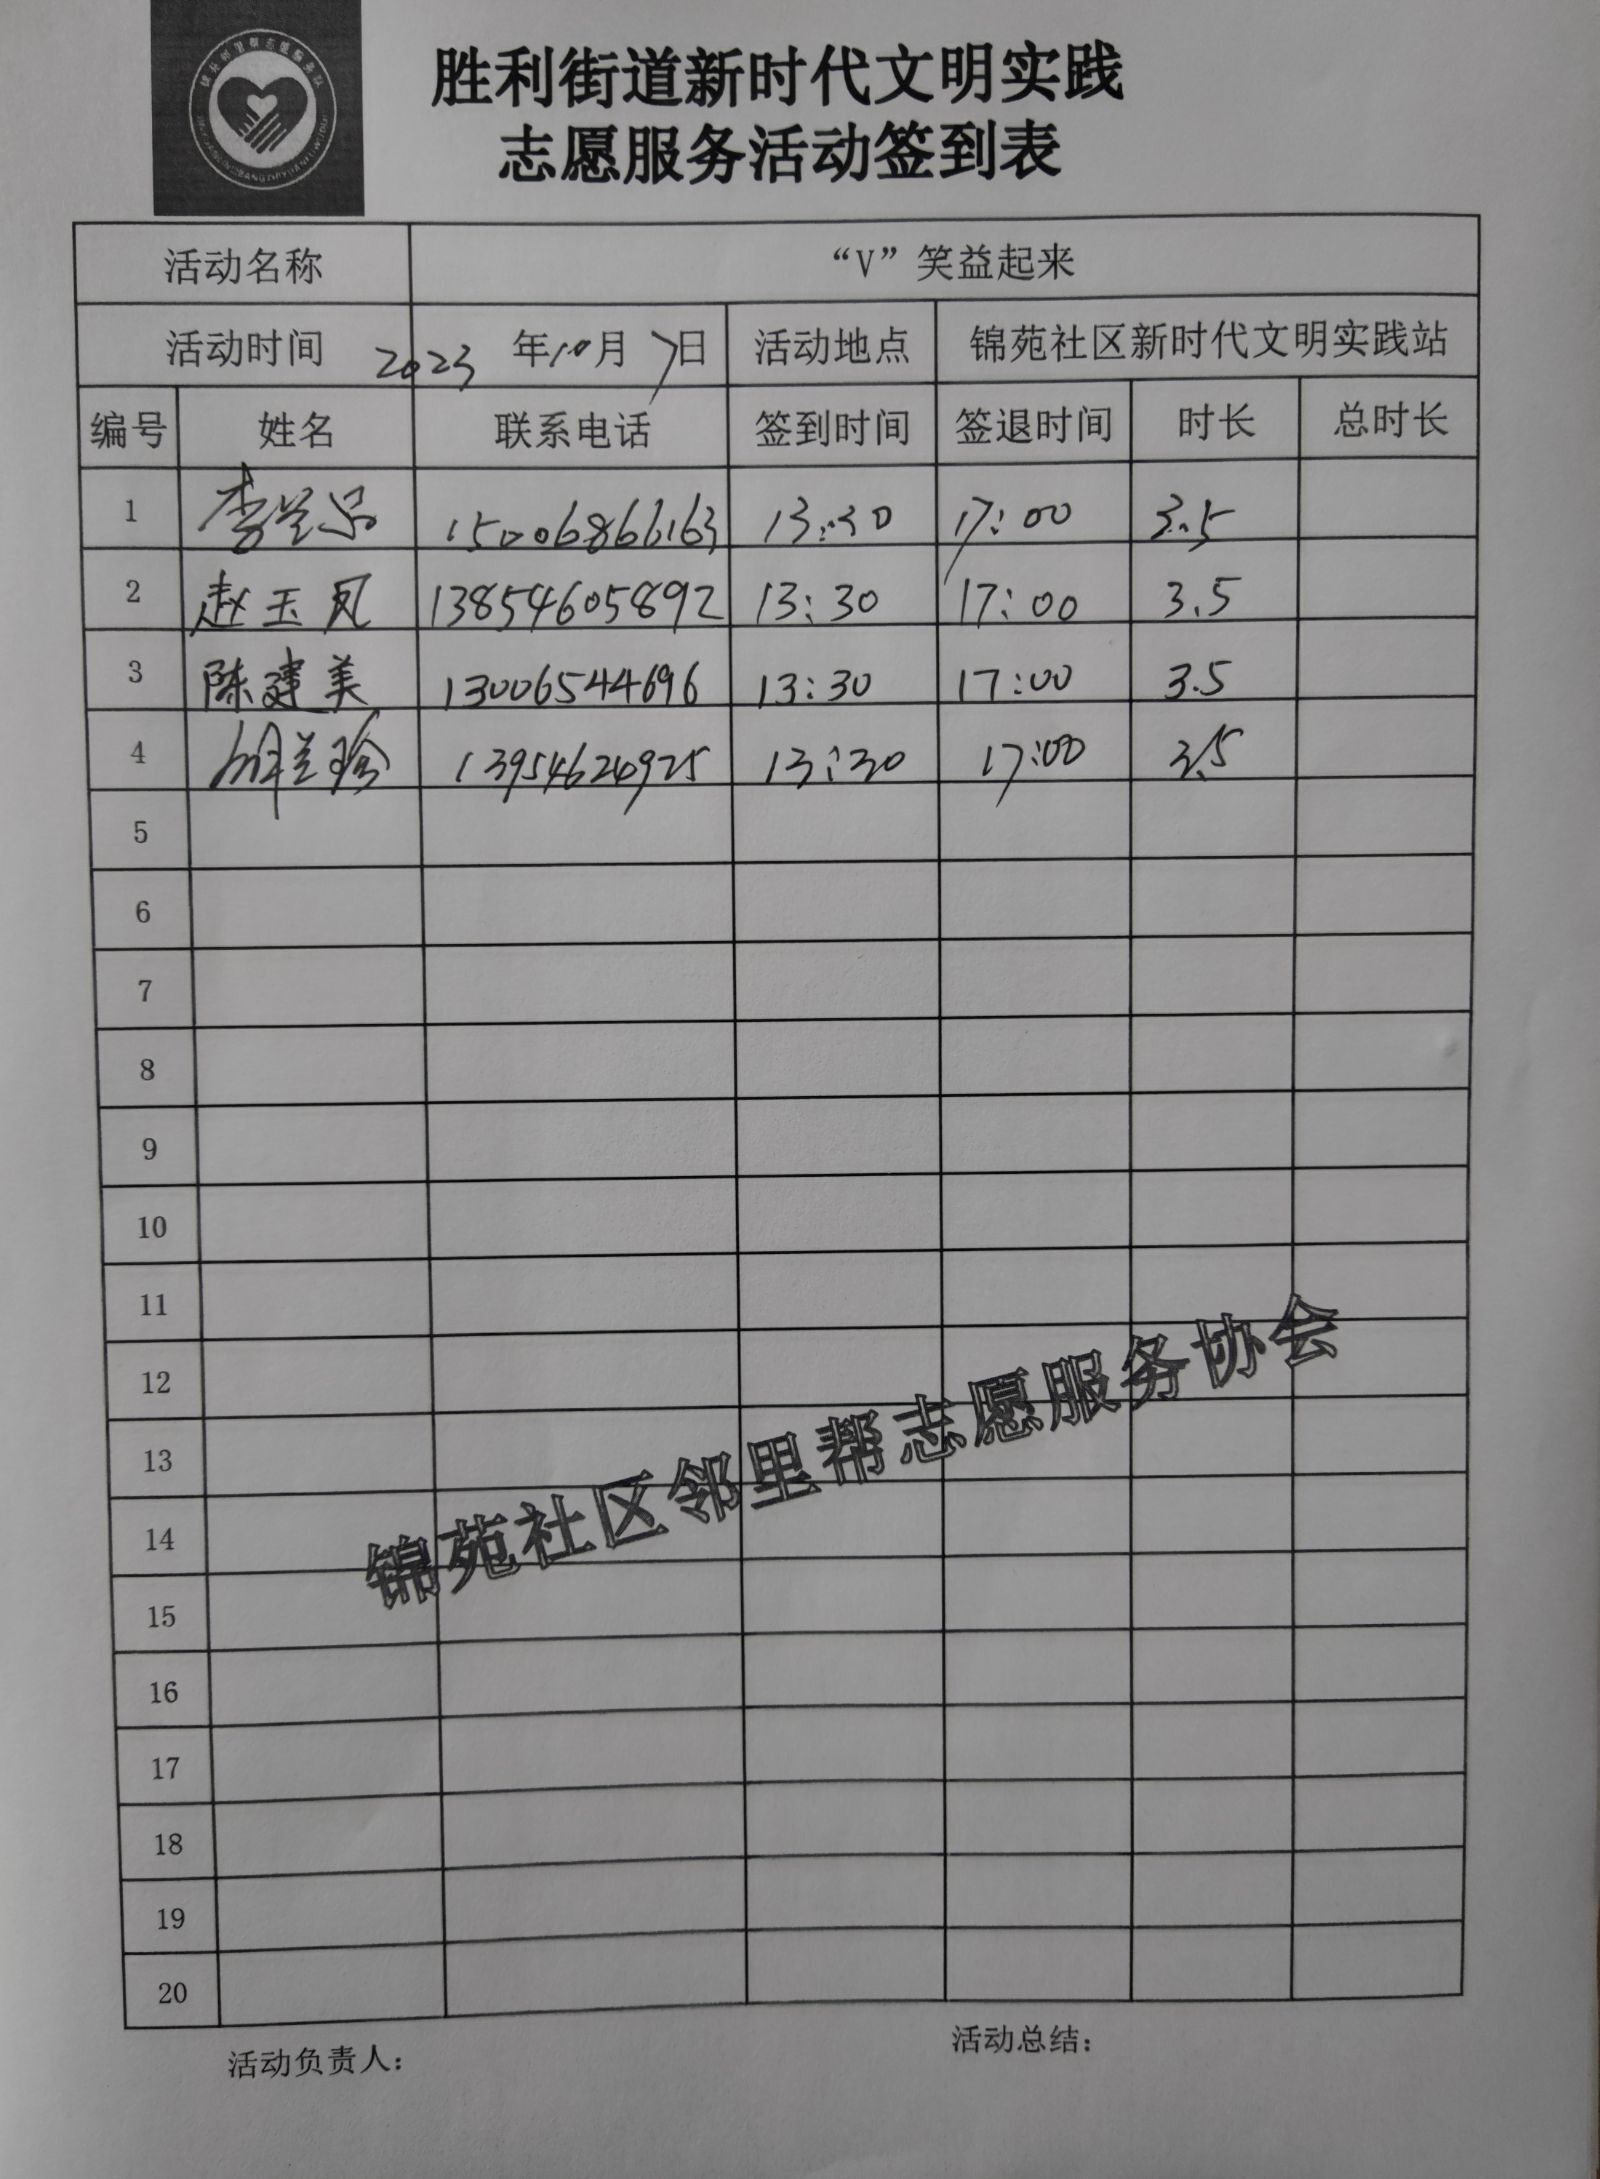 锦苑邻里帮志愿服务队
胜利街道新时代文明实践
志愿服务活动签到表
活动名称 “V”笑益起来
活动时间 2023 年10月7日 活动地点 锦苑社区新时代文明实践站
编号 姓名 联系电话 签到时间 签退时间 时长 总时长
1 李兰 15006866163 13:30 17:00 3.5
2 赵玉凤 13854605892 13:30 17:00 3.5
3 陈建美 13006544696 13:30 17:00 3.5
4 胡兰珍 13954624925 13:30 17:00 3.5
5
6
7
8
9
10
11
12
13
14
15
16
17
18
19
20
锦苑社区邻里帮志愿服务协会
活动负责人： 活动总结：